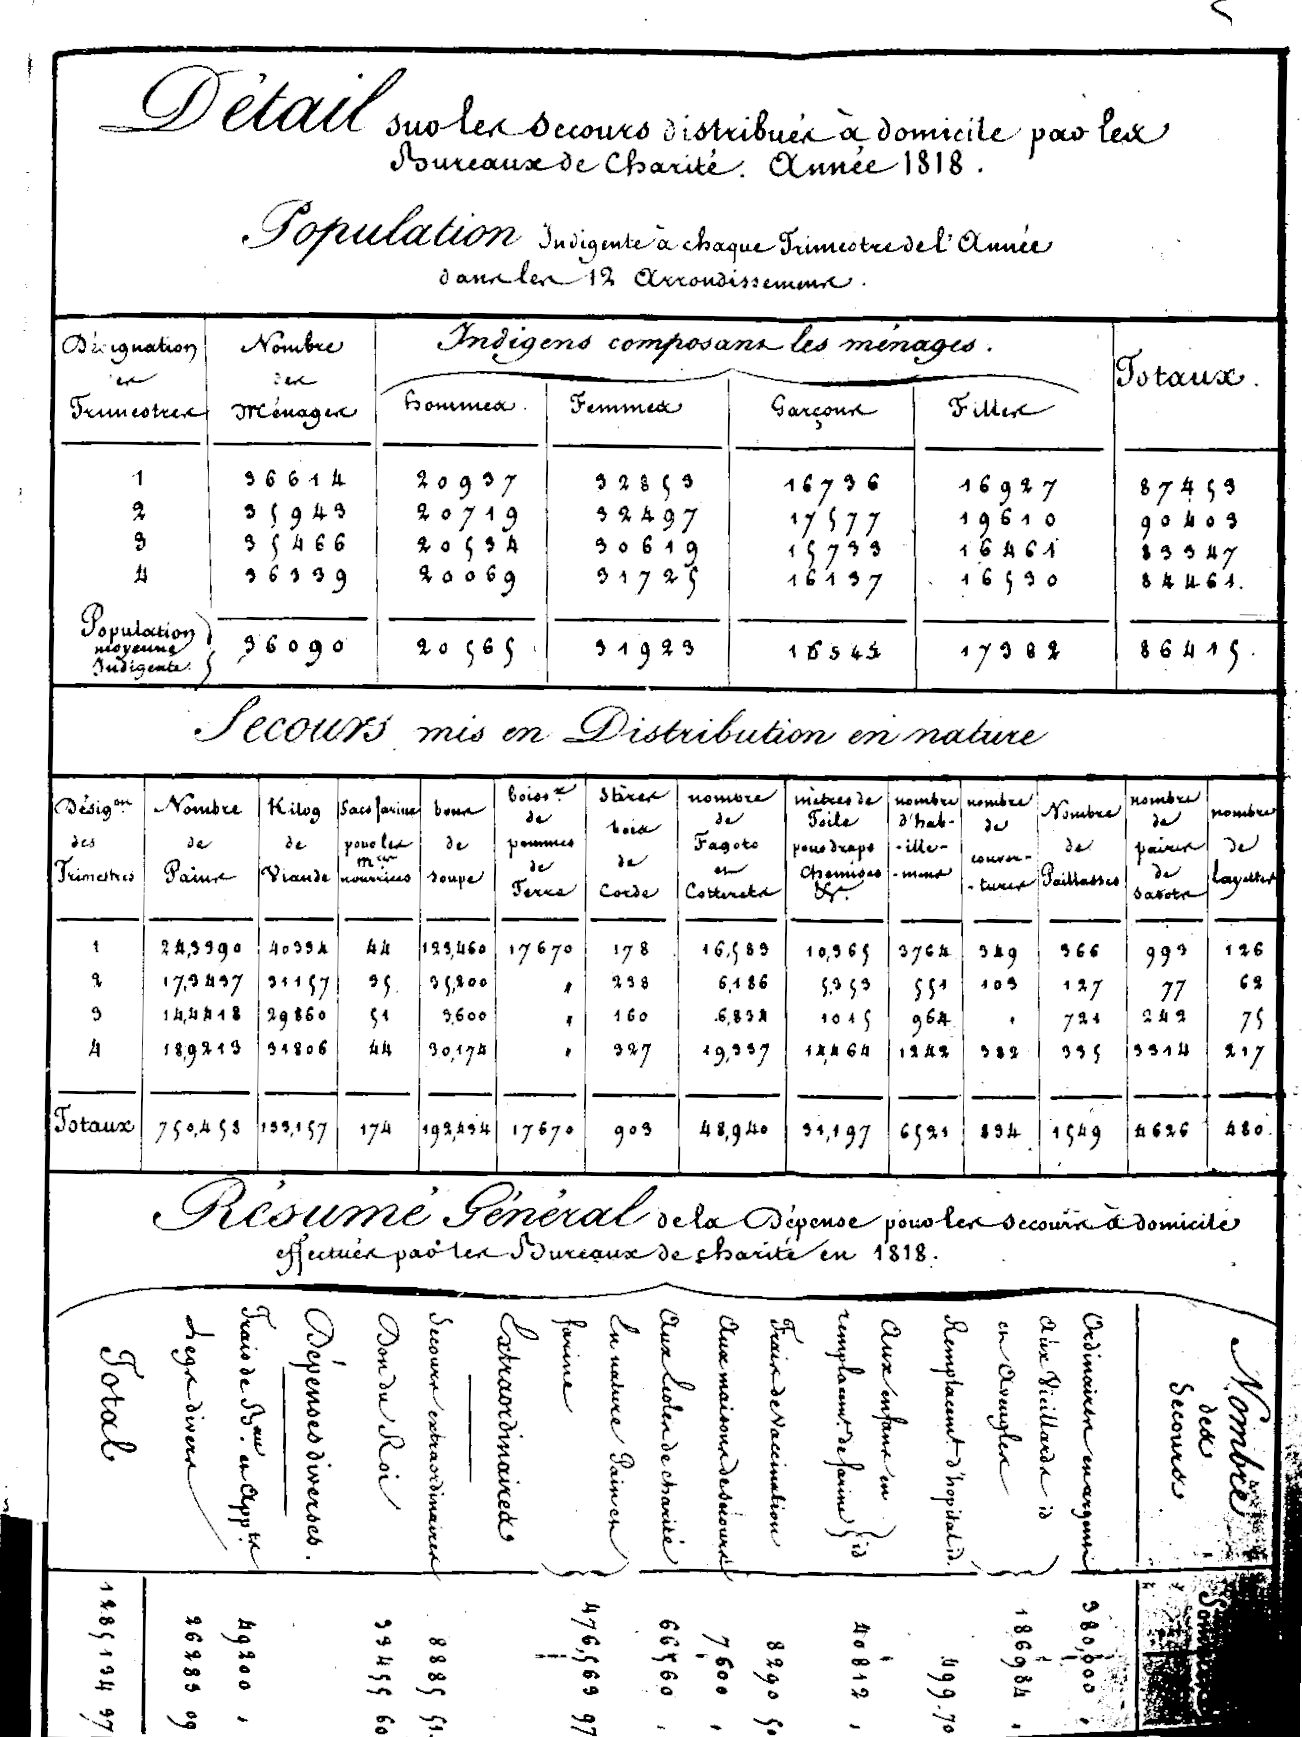 Détail sur les Secours distribués à domicile par les
Bureaux de Charité. Année 1818.
Population Indigente à chaque Trimestre de l'Année
dans les 12 Arrondissemens.
Désignation des Trimestres | Nombre des Ménages | Indigens composans les ménages. | Totaux.
Hommes. | Femmes | Garçons | Filles
1 | 36614 | 20937 | 32853 | 16736 | 16927 | 87453
2 | 35943 | 20719 | 32497 | 17577 | 19610 | 90403
3 | 35466 | 20534 | 30619 | 15733 | 16461 | 83347
4 | 36339 | 20069 | 31725 | 16137 | 16530 | 84461.
Population moyenne Indigente. | 36090 | 20565 | 31923 | 16545 | 17382 | 86415.
Secours mis en Distribution en nature
Désig.on des Trimestres | Nombre de Pains | Kilog de Viande | Sacs farine pour les mères nourrices | bons de soupe | boiss.x de pommes de Terre | Stères bois de Corde | nombre de Fagots et Cotterets | mètres de Toile pour draps Chemises &c. | nombre d'habillemens | nombre de couvertures | Nombre de Paillasses | nombre de paires de Sabots | nombre de Layettes
1 | 243390 | 40334 | 44 | 123,460 | 17670 | 178 | 16,583 | 10,365 | 3764 | 349 | 366 | 993 | 126
2 | 173437 | 31157 | 35. | 35,200 | " | 238 | 6,186 | 5353 | 551 | 103 | 127 | 77 | 62
3 | 144418 | 29860 | 51 | 3,600 | " | 160 | 6,834 | 1015 | 964 | " | 721 | 242 | 75
4 | 189213 | 31806 | 44 | 30,174 | " | 327 | 19,337 | 14,464 | 1242 | 382 | 335 | 3314 | 217
Totaux | 750,458 | 133,157 | 174 | 192,434 | 17670 | 903 | 48,940 | 31,197 | 6521 | 834 | 1549 | 4626 | 480.
Résumé Général de la Dépense pour les secours à domicile
effectués par les Bureaux de charité en 1818.
Nombre des Secours
Ordinaires en argent 380,000 "
aux Vieillards id
en Aveugles 186984 "
Remplacent. d'hopital id. 499,70
Aux enfans en
remplacmt. de farine id 40812 "
Frais de Vaccination 8290 50
Aux maisons de secours 7600 "
Aux Ecoles de charité 66560 "
En nature Pain et
farine 476,569 97
Extraordinaires
Secours extraordinaires 8885 51.
Don du Roi 33455 60
Dépenses diverses.
Frais de B.au et App.ts 49200 "
Legs divers 26283 09
Total 1285134 97